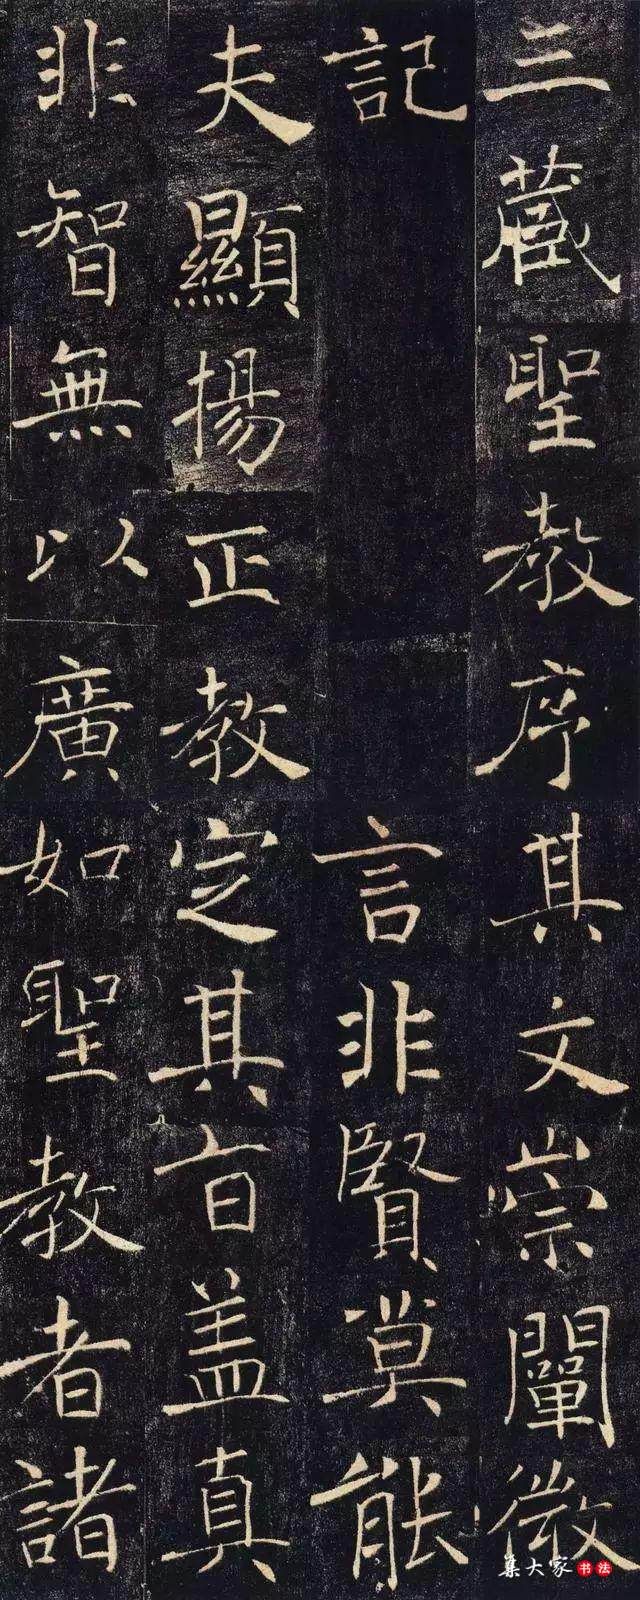 三藏聖教序
記
夫顯揚正教
非智無以廣
其文崇闡微
言非賢莫能
定其旨盖真
如聖教者諸
集大家书法